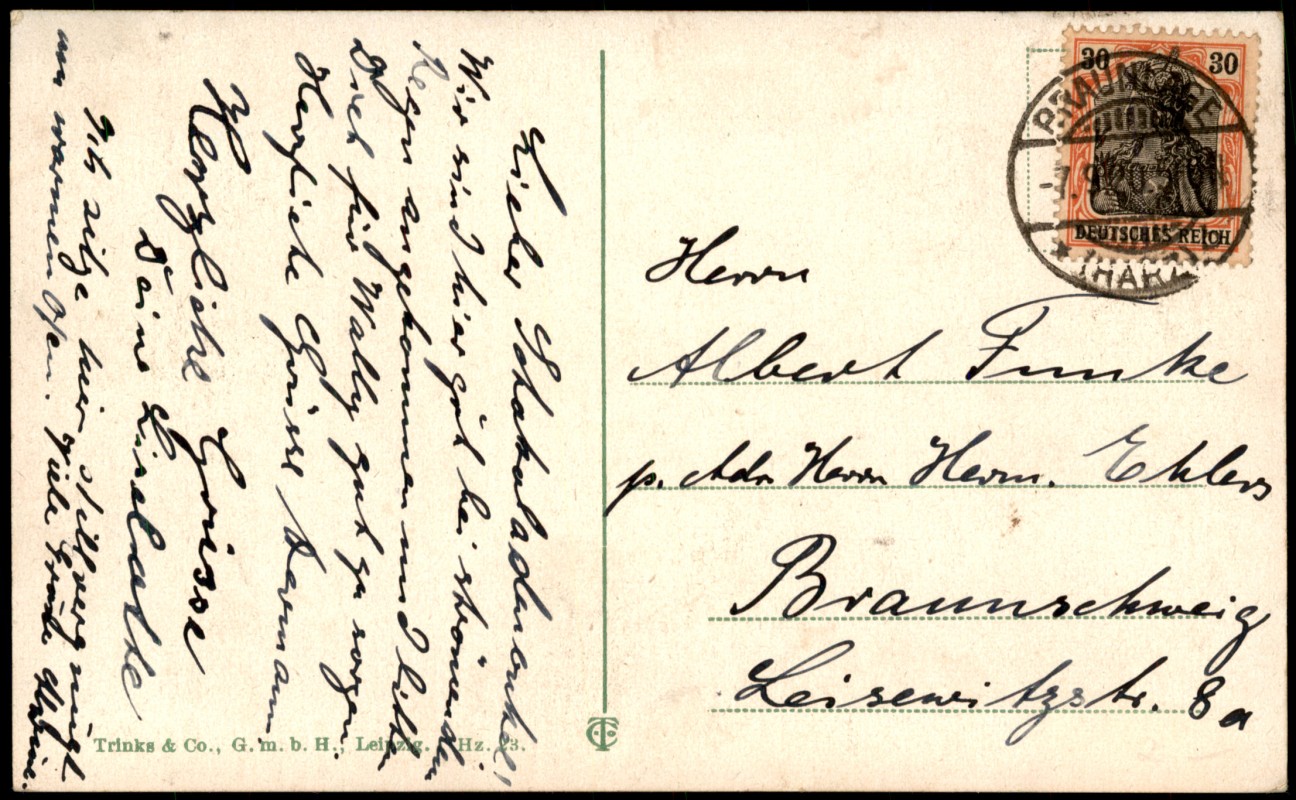 Lieber Schokoladenonkel!
Wir sind hier gut bei strömenden
Regen angekommen und bitten
Dich für Wally gut zu sorgen.
Herzliche Grüsse Hermann
Herzliche Grüsse
Deine Liselotte
Ich sitze hier stillvergnügt
am warmen Ofen. Viele Grüße
30 30
DEUTSCHES REICH
BRAUNLAGE
(HARZ)
Herrn
Albert Funke
p. Adr. Herrn Herm. Ehlers
Braunschweig
Leisewitzstr. 8a
Trinks & Co., G. m. b. H., Leipzig. Hz. 23.